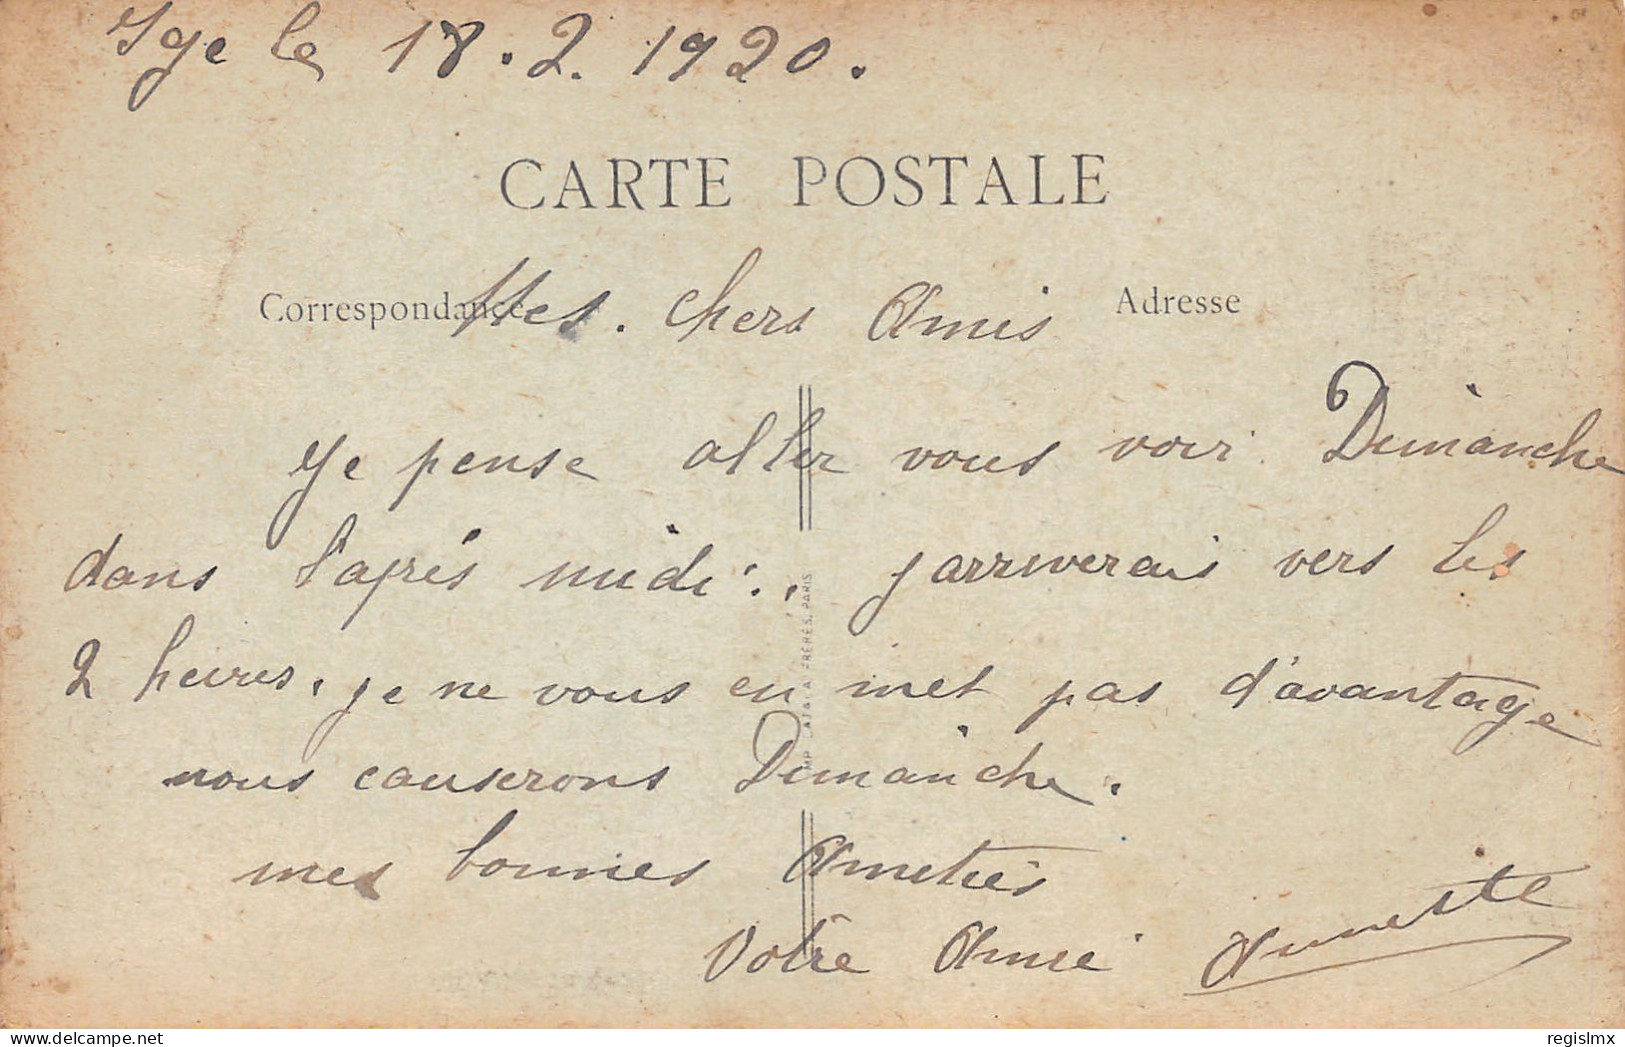 Ige le 18.2.1920.
CARTE POSTALE
Correspondance
Mes. chers Amis
Adresse
Je pense aller vous voir Dimanche
dans l'après midi. j arriverais vers les
2 heures. je ne vous en met pas d'avantage
nous causerons Dimanche.
mes bonnes Ametiés
Votre Amie Annette
IMP. CATALA FRERES, PARIS
regislmx